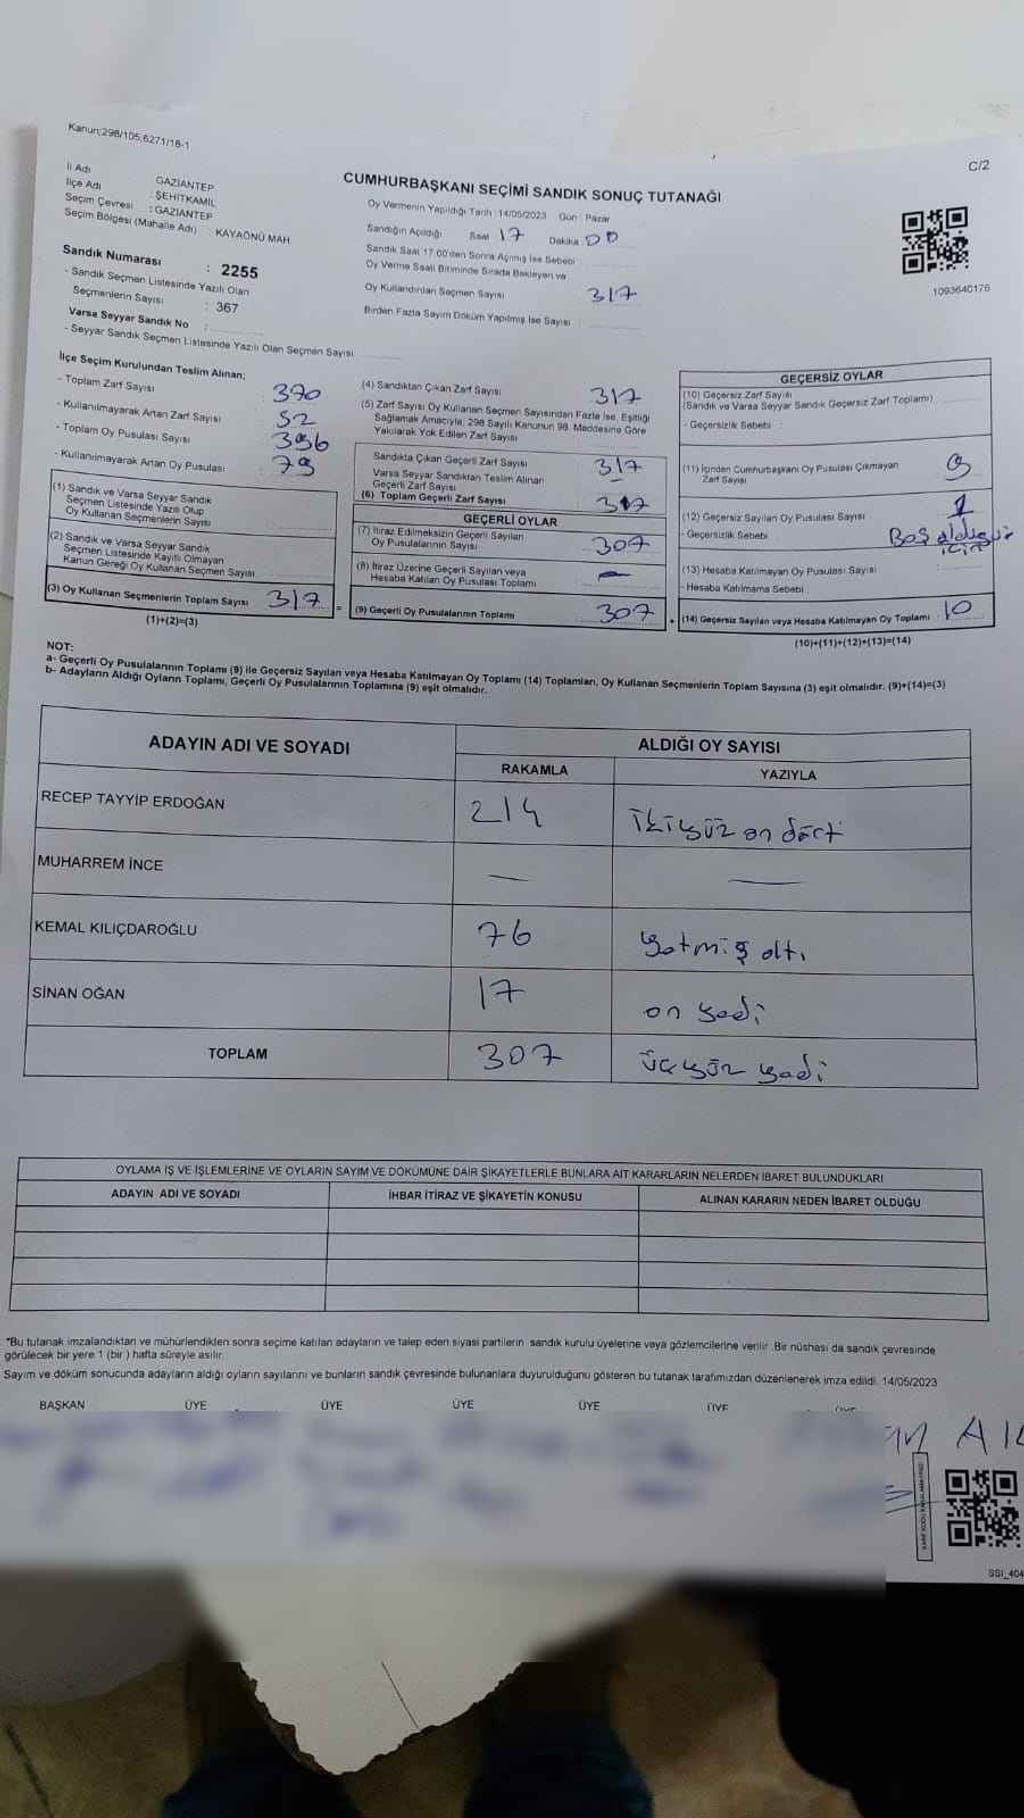 Kanun;298/105,6271/18-1
C/2
İl Adı GAZİANTEP
İlçe Adı : ŞEHİTKAMİL
Seçim Çevresi : GAZİANTEP
Seçim Bölgesi (Mahalle Adı) KAYAÖNÜ MAH.
CUMHURBAŞKANI SEÇİMİ SANDIK SONUÇ TUTANAĞI
Oy Vermenin Yapıldığı Tarih : 14/05/2023 Gün : Pazar
Sandığın Açıldığı Saat 17 Dakika 00
Sandık Saat 17:00'den Sonra Açılmış İse Sebebi
Oy Verme Saati Bitiminde Sırada Bekleyen ve
Oy Kullandırılan Seçmen Sayısı 317
Birden Fazla Sayım Döküm Yapılmış İse Sayısı :
1093640176
Sandık Numarası : 2255
- Sandık Seçmen Listesinde Yazılı Olan
Seçmenlerin Sayısı : 367
Varsa Seyyar Sandık No :
- Seyyar Sandık Seçmen Listesinde Yazılı Olan Seçmen Sayısı
İlçe Seçim Kurulundan Teslim Alınan;
- Toplam Zarf Sayısı 370
- Kullanılmayarak Artan Zarf Sayısı 52
- Toplam Oy Pusulası Sayısı 396
- Kullanılmayarak Artan Oy Pusulası 79
(1) Sandık ve Varsa Seyyar Sandık
Seçmen Listesinde Yazılı Olup
Oy Kullanan Seçmenlerin Sayısı
(2) Sandık ve Varsa Seyyar Sandık
Seçmen Listesinde Kayıtlı Olmayan
Kanun Gereği Oy Kullanan Seçmen Sayısı
(3) Oy Kullanan Seçmenlerin Toplam Sayısı 317 =
(1)+(2)=(3)
(4) Sandıktan Çıkan Zarf Sayısı 317
(5) Zarf Sayısı Oy Kullanan Seçmen Sayısından Fazla İse, Eşitliği
Sağlamak Amacıyla; 298 Sayılı Kanunun 98. Maddesine Göre
Yakılarak Yok Edilen Zarf Sayısı
Sandıkta Çıkan Geçerli Zarf Sayısı 317
Varsa Seyyar Sandıktan Teslim Alınan
Geçerli Zarf Sayısı
(6) Toplam Geçerli Zarf Sayısı 317
GEÇERLİ OYLAR
(7) İtiraz Edilmeksizin Geçerli Sayılan
Oy Pusulalarının Sayısı 307
(8) İtiraz Üzerine Geçerli Sayılan veya
Hesaba Katılan Oy Pusulası Toplamı -
(9) Geçerli Oy Pusulalarının Toplamı 307 +
GEÇERSİZ OYLAR
(10) Geçersiz Zarf Sayısı
(Sandık ve Varsa Seyyar Sandık Geçersiz Zarf Toplamı)
- Geçersizlik Sebebi :
(11) İçinden Cumhurbaşkanı Oy Pusulası Çıkmayan
Zarf Sayısı 9
(12) Geçersiz Sayılan Oy Pusulası Sayısı 1
- Geçersizlik Sebebi Boş olduğu
için
(13) Hesaba Katılmayan Oy Pusulası Sayısı :
- Hesaba Katılmama Sebebi :
(14) Geçersiz Sayılan veya Hesaba Katılmayan Oy Toplamı 10
(10)+(11)+(12)+(13)=(14)
NOT:
a- Geçerli Oy Pusulalarının Toplamı (9) ile Geçersiz Sayılan veya Hesaba Katılmayan Oy Toplamı (14) Toplamları, Oy Kullanan Seçmenlerin Toplam Sayısına (3) eşit olmalıdır. (9)+(14)=(3)
b- Adayların Aldığı Oyların Toplamı, Geçerli Oy Pusulalarının Toplamına (9) eşit olmalıdır.
ADAYIN ADI VE SOYADI ALDIĞI OY SAYISI
RAKAMLA YAZIYLA
RECEP TAYYİP ERDOĞAN 214 ikiyüz on dört
MUHARREM İNCE — —
KEMAL KILIÇDAROĞLU 76 yetmiş altı
SİNAN OĞAN 17 on yedi
TOPLAM 307 üçyüz yedi
OYLAMA İŞ VE İŞLEMLERİNE VE OYLARIN SAYIM VE DÖKÜMÜNE DAİR ŞİKAYETLERLE BUNLARA AİT KARARLARIN NELERDEN İBARET BULUNDUKLARI
ADAYIN ADI VE SOYADI İHBAR İTİRAZ VE ŞİKAYETİN KONUSU ALINAN KARARIN NEDEN İBARET OLDUĞU
*Bu tutanak imzalandıktan ve mühürlendikten sonra seçime katılan adayların ve talep eden siyasi partilerin sandık kurulu üyelerine veya gözlemcilerine verilir. Bir nüshası da sandık çevresinde
görülecek bir yere 1 (bir) hafta süreyle asılır.
Sayım ve döküm sonucunda adayların aldığı oyların sayılarını ve bunların sandık çevresinde bulunanlara duyurulduğunu gösteren bu tutanak tarafımızdan düzenlenerek imza edildi. 14/05/2023
BAŞKAN ÜYE ÜYE ÜYE ÜYE ÜYE ÜYE
SSI_404